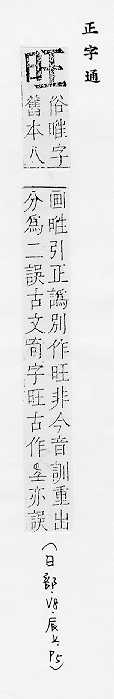 正字通
旺
俗暀字
舊本八
画暀引正譌別作旺非今音訓重出
分爲二誤古文字旺古作亦誤
(日部·V8·辰上·P5)